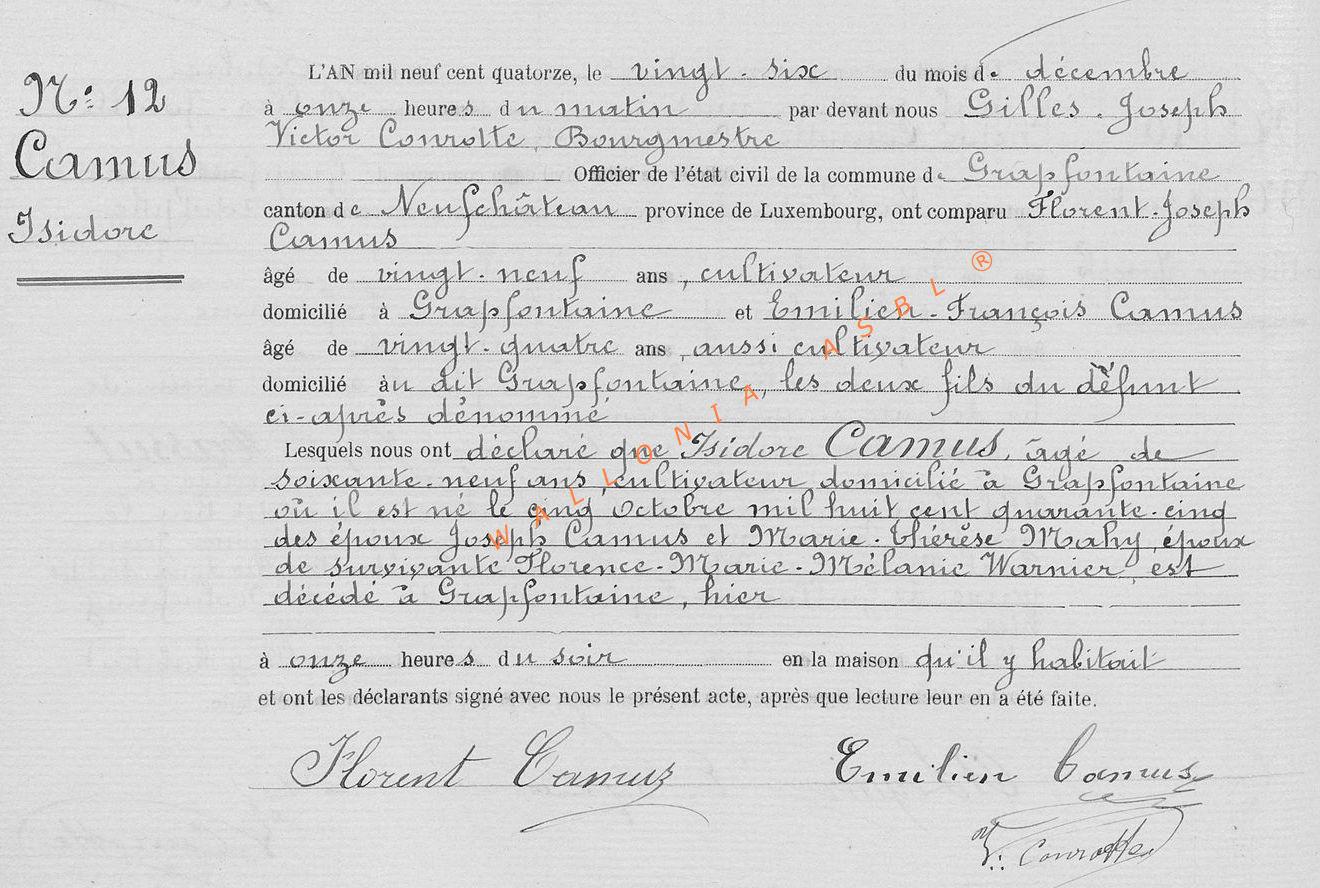 N° 12
Camus
Isidore
L'AN mil neuf cent quatorze, le vingt-six du mois de décembre
à onze heures du matin par devant nous Gilles-Joseph
Victor Conrotte, Bourgmestre
Officier de l'état civil de la commune de Grapfontaine
canton de Neufchâteau province de Luxembourg, ont comparu Florent-Joseph
Camus
âgé de vingt-neuf ans, cultivateur
domicilié à Grapfontaine et Emilien-François Camus
âgé de vingt-quatre ans, aussi cultivateur
domicilié àu dit Grapfontaine, les deux fils du défunt
ci-après dénommé
Lesquels nous ont déclaré que Isidore Camus, âgé de
soixante-neuf ans, cultivateur domicilié à Grapfontaine
où il est né le cinq octobre mil huit cent quarante-cinq
des époux Joseph Camus et Marie-Thérèse Mahy, époux
de survivante Florence-Marie-Mélanie Warnier, est
décédé à Grapfontaine, hier
à onze heures du soir en la maison qu'il y habitait
et ont les déclarants signé avec nous le présent acte, après que lecture leur en a été faite.
Florent Camus Emilien Camus
V. Conrotte
WALLONIA ASBL ®